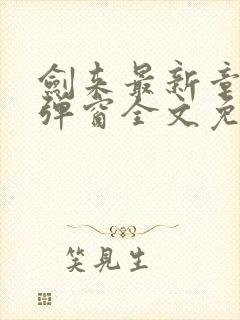 劍来最新章
弹窗全文免
笑見生